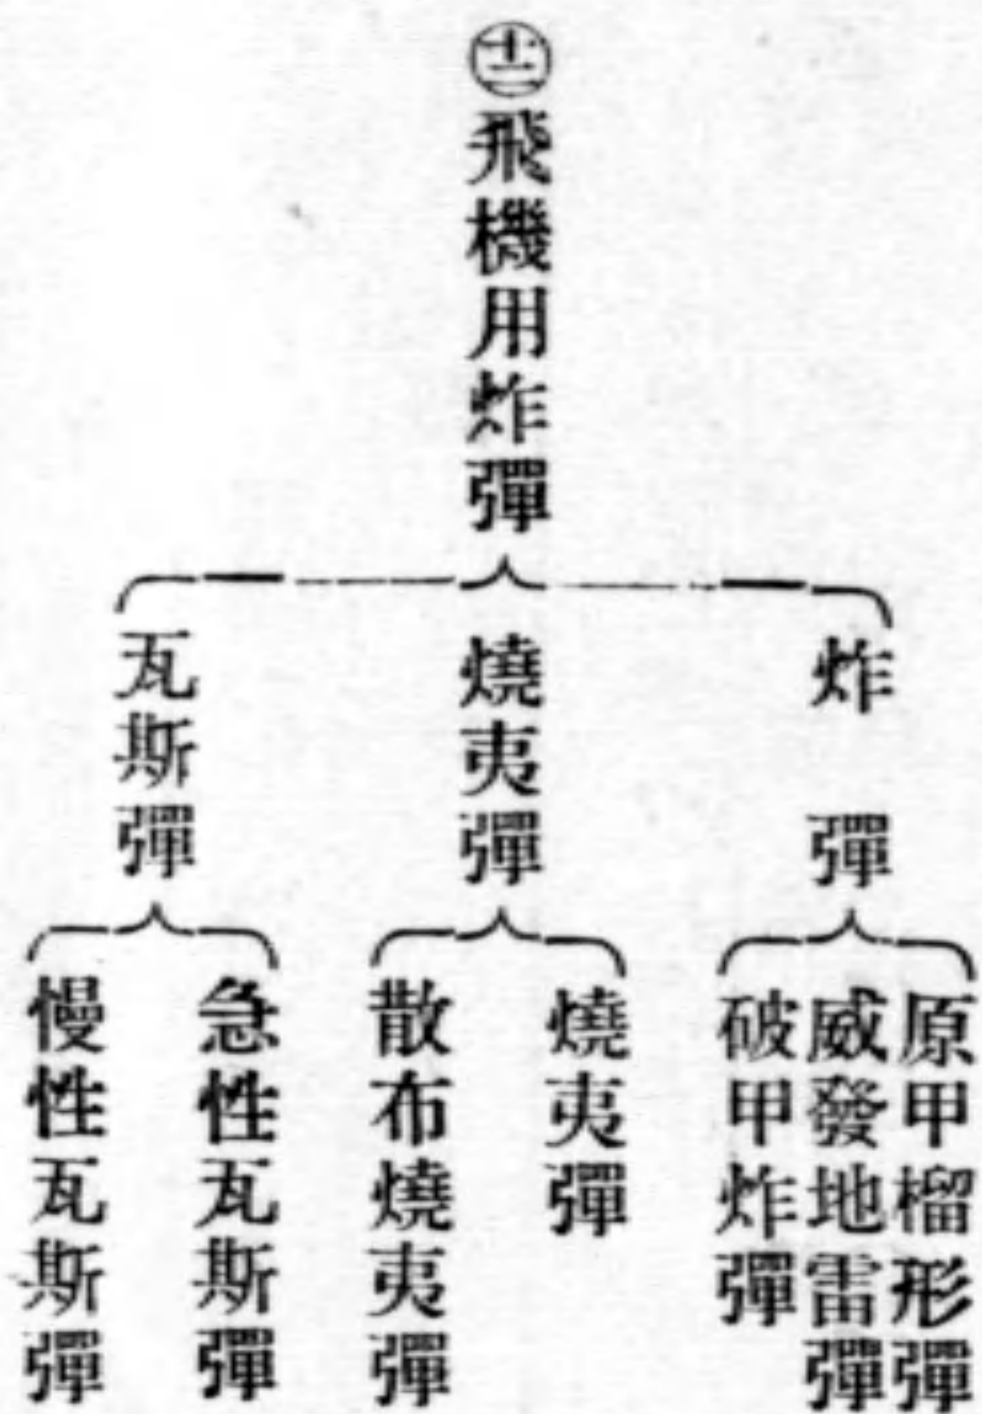 ㊁飛機用炸彈
炸彈
原甲榴形彈
威發地雷彈
破甲炸彈
燒夷彈
燒夷彈
散布燒夷彈
瓦斯彈
急性瓦斯彈
慢性瓦斯彈